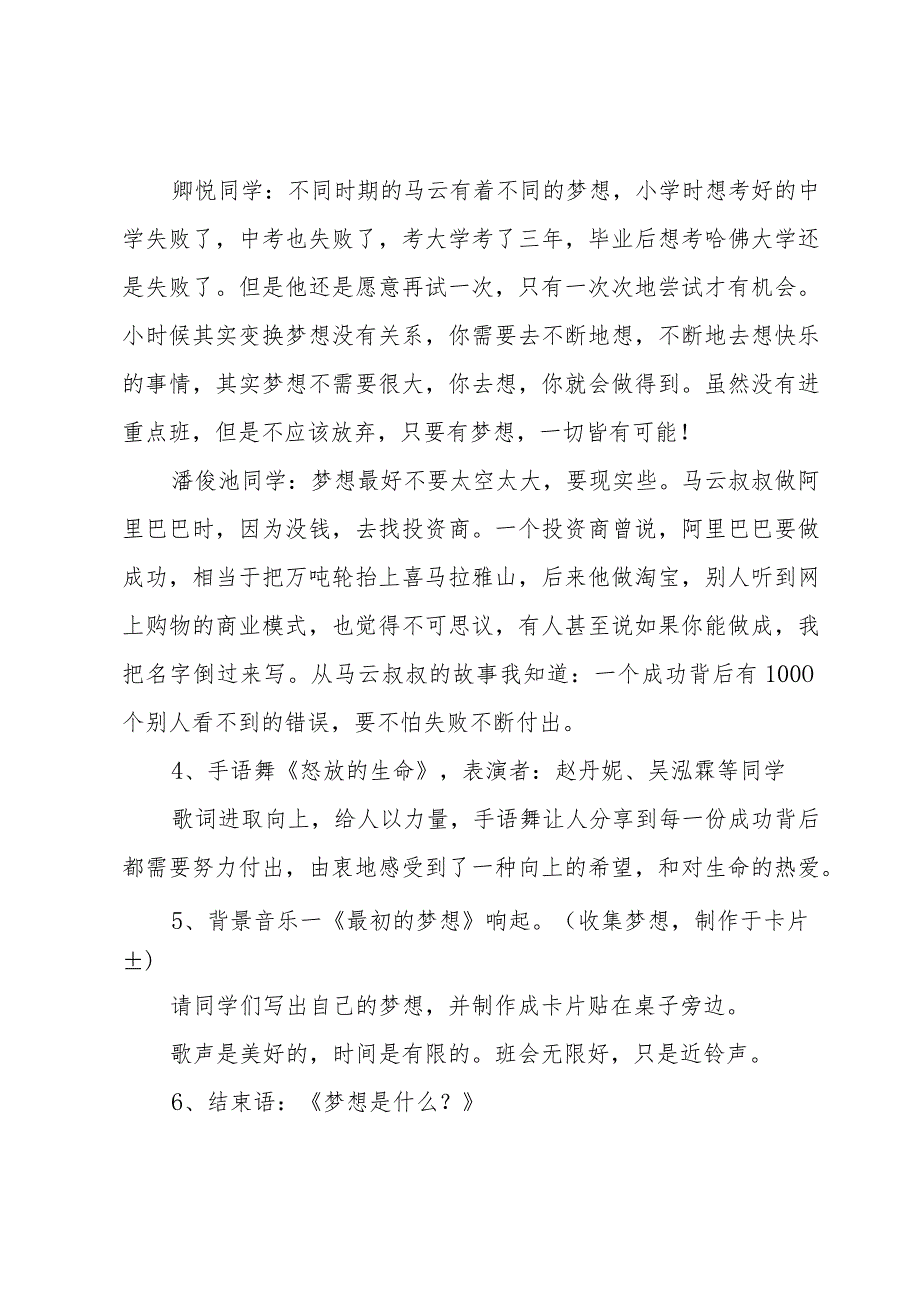 卿悦同学：不同时期的马云有着不同的梦想，小学时想考好的中
学失败了，中考也失败了，考大学考了三年，毕业后想考哈佛大学还
是失败了。但是他还是愿意再试一次，只有一次次地尝试才有机会。
小时候其实变换梦想没有关系，你需要去不断地想，不断地去想快乐
的事情，其实梦想不需要很大，你去想，你就会做得到。虽然没有进
重点班，但是不应该放弃，只要有梦想，一切皆有可能！
潘俊池同学：梦想最好不要太空太大，要现实些。马云叔叔做阿
里巴巴时，因为没钱，去找投资商。一个投资商曾说，阿里巴巴要做
成功，相当于把万吨轮抬上喜马拉雅山，后来他做淘宝，别人听到网
上购物的商业模式，也觉得不可思议，有人甚至说如果你能做成，我
把名字倒过来写。从马云叔叔的故事我知道：一个成功背后有 1000
个别人看不到的错误，要不怕失败不断付出。
4、手语舞《怒放的生命》，表演者：赵丹妮、吴泓霖等同学
歌词进取向上，给人以力量，手语舞让人分享到每一份成功背后
都需要努力付出，由衷地感受到了一种向上的希望，和对生命的热爱。
5、背景音乐一《最初的梦想》响起。（收集梦想，制作于卡片
±）
请同学们写出自己的梦想，并制作成卡片贴在桌子旁边。
歌声是美好的，时间是有限的。班会无限好，只是近铃声。
6、结束语：《梦想是什么？》